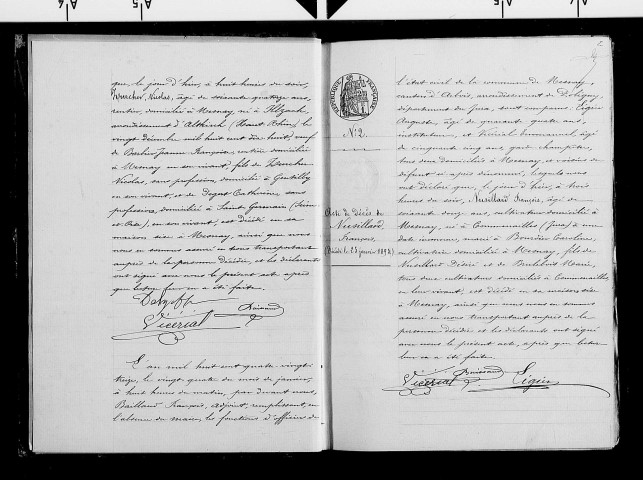 que le jour d'hier, à huit heures du soir,
Zurcher, Nicolas, âgé de soixante quatorze ans,
rentier, domicilié à Mesnay né à Illzach,
arrondissement d'Altkirch (Haut Rhin), le
vingt décembre mil huit cent dix huit, veuf
de Jeanne Françoise, rentière domiciliée
à Mesnay en son vivant, fils de Zurcher
Nicolas, sans profession, domicilié à
en son vivant, et de Catherine sans
profession, domiciliée à Saint Germain
en son vivant, est décédé en sa
maison sise à Mesnay, ainsi que nous
nous en sommes assuré en nous transportant
auprès de la personne décédée, et les déclarants
ont signé avec nous le présent acte après
que lecture leur en a été faite.
Vicerial
L'an mil huit cent quatre-vingt
treize, le vingt quatre du mois de janvier,
à huit heures du matin, par devant nous,
Bailland François, adjoint, remplissant, en
l'absence du maire, les fonctions d'officier de
N° 2.
Acte de décès de
Neusillard
François
(Décédé le 23 janvier 1893)
l'état civil de la commune de Mesnay,
canton d'Arbois, arrondissement de Poligny,
département du Jura, sont comparus: Ligier
Auguste, âgé de quarante ans,
instituteur, et Vicerial Emmanuel, âgé
de cinquante cinq ans garde champêtre,
tous deux domiciliés à Mesnay, et voisins du
défunt ci après dénommé, lesquels nous
ont déclaré que, le jour d'hier, à trois
heures du soir, Neusillard François, âgé de
soixante douze ans, cultivateur domicilié à
Mesnay, né à Commenailles (Jura) à une
date inconnue, marié à Caroline,
cultivatrice domiciliée à Mesnay, fils de
Neusillard Désiré et de Marie,
tous deux cultivateurs domiciliés à Commenailles
en leur vivant, est décédé en sa maison sise
à Mesnay, ainsi que nous nous en sommes
assuré en nous transportant auprès de la
personne décédée et les déclarants ont signé
avec nous le présent acte, après que lecture
leur en a été faite.
Vicerial Ligier